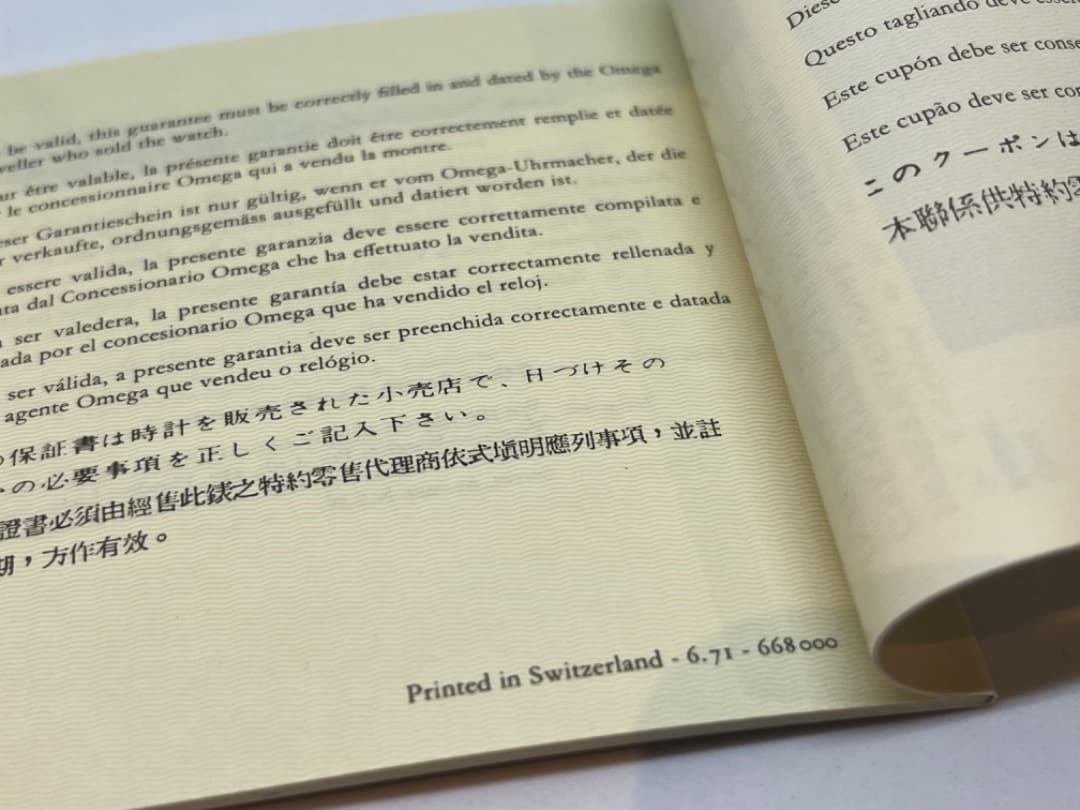 be valid, this guarantee must be correctly filled in and dated by the Omega
weller who sold the watch.
ur être valable, la présente garantie doit être correctement remplie et datée
le concessionnaire Omega qui a vendu la montre.
eser Garantieschein ist nur gültig, wenn er vom Omega-Uhrmacher, der die
verkaufte, ordnungsgemäss ausgefüllt und datiert worden ist.
essere valida, la presente garanzia deve essere correttamente compilata e
ta dal Concessionario Omega che ha effettuato la vendita.
ser valedera, la presente garantía debe estar correctamente rellenada y
ada por el concesionario Omega que ha vendido el reloj.
ser válida, a presente garantia deve ser preenchida correctamente e datada
agente Omega que vendeu o relógio.
保証書は時計を販売された小売店で、日づけその
の必要事項を正しくご記入下さい。
證書必須由經售此錶之特約零售代理商依式塡明應列事項，並註
期，方作有效。
Printed in Switzerland - 6.71 - 668000
Diese
Questo tagliando deve esse
Este cupón debe ser conse
Este cupão deve ser con
このクーポンは
本聯係供特約零